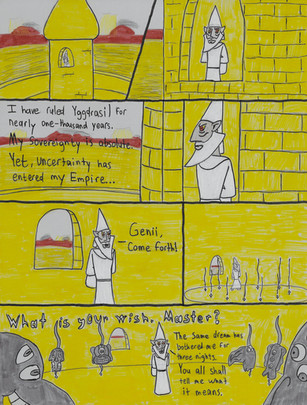 I have ruled Yggdrasil for
nearly one-thousand years.
My Sovereignty is absolute.
Yet, Uncertainty has
entered my Empire...
Genii,
Come forth!
What is your wish, Master?
The Same dream has
bothered me for
three nights.
You all shall
tell me what
it means.